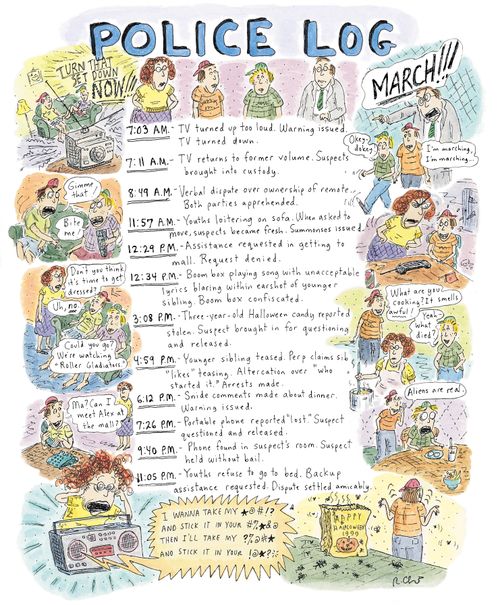 POLICE LOG
TURN THAT
SET DOWN
NOW!!!
MARCH!!!
7:03 A.M.- TV turned up too loud. Warning issued.
TV turned down.
7:11 A.M.- TV returns to former volume. Suspects
brought into custody.
8:49 A.M.- Verbal dispute over ownership of remote.
Both parties apprehended.
11:57 A.M.- Youths loitering on sofa. When asked to
move, suspects became fresh. Summonses issued.
12:29 P.M.- Assistance requested in getting to
mall. Request denied.
12:34 P.M.- Boom box playing song with unacceptable
lyrics blaring within earshot of younger
sibling. Boom box confiscated.
3:08 P.M.- Three-year-old Halloween candy reported
stolen. Suspect brought in for questioning
and released.
4:59 P.M.- Younger sibling teased. Perp claims sib
"likes" teasing. Altercation over "who
started it." Arrests made.
6:12 P.M.- Snide comments made about dinner.
Warning issued.
7:26 P.M.- Portable phone reported "lost." Suspect
questioned and released.
9:40 P.M.- Phone found in suspect's room. Suspect
held without bail.
11:05 P.M.- Youths refuse to go to bed. Backup
assistance requested. Dispute settled amicably.
Okey-
dokey.
I'm marching,
I'm marching...
Gimme
that.
Bite
me!
Don't you think
it's time to get
dressed?
Uh, no.
Could you go?
We're watching
"Roller Gladiators."
What are you
cooking? It smells
awful!
Yeah,
what
died?
Ma? Can I
meet Alex at
the mall?
Aliens are real.
I WANNA TAKE MY *@#!?
AND STICK IT IN YOUR #%*&@
THEN I'LL TAKE MY ?%@#*
AND STICK IT IN YOUR !@*?::
HAPPY
HALLOWEEN
1999
R. Chast